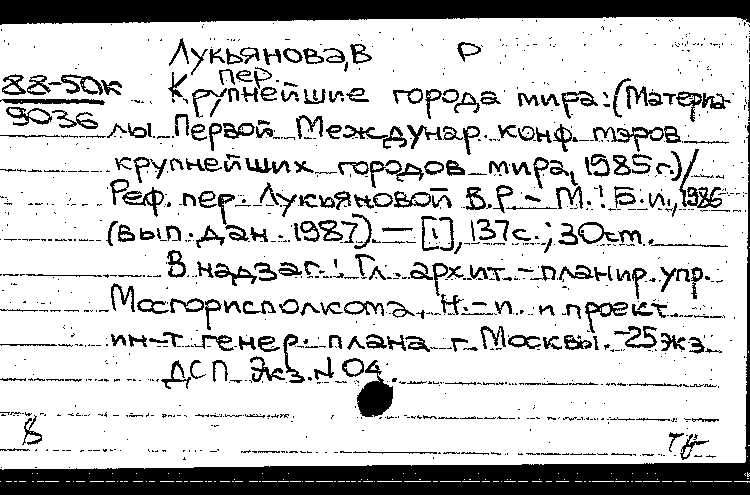 Лукьянова, В Р
пер.
88-50к
9036
Крупнейшие города мира: (Материа-
лы Первой Междунар. конф. мэров
крупнейших городов мира, 1985 г.) /
Реф. пер. Лукьяновой В.Р. - М.: Б.и., 1986
(вып. дан. 1987). — [1], 137 с.; 30 см.
В надзаг.: Гл. архит.-планир. упр.
Мосгорисполкома, Н.-и. и проект.
ин-т генер. плана г. Москвы. -25 экз.
ДСП Экз. N 04.
8